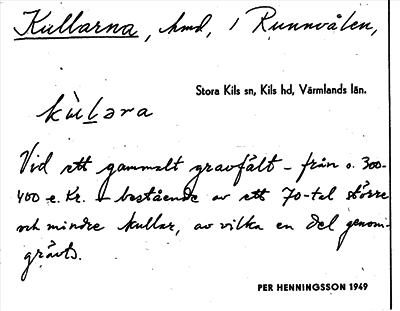 Kullarna, hmd, i Runnvålen,
Stora Kils sn, Kils hd, Värmlands län.
kùl̲əra
Vid ett gammalt gravfält – från o. 300-
400 e. Kr. – bestående av ett 70-tal större
och mindre kullar, av vilka en del genom-
grävts.
PER HENNINGSSON 1949